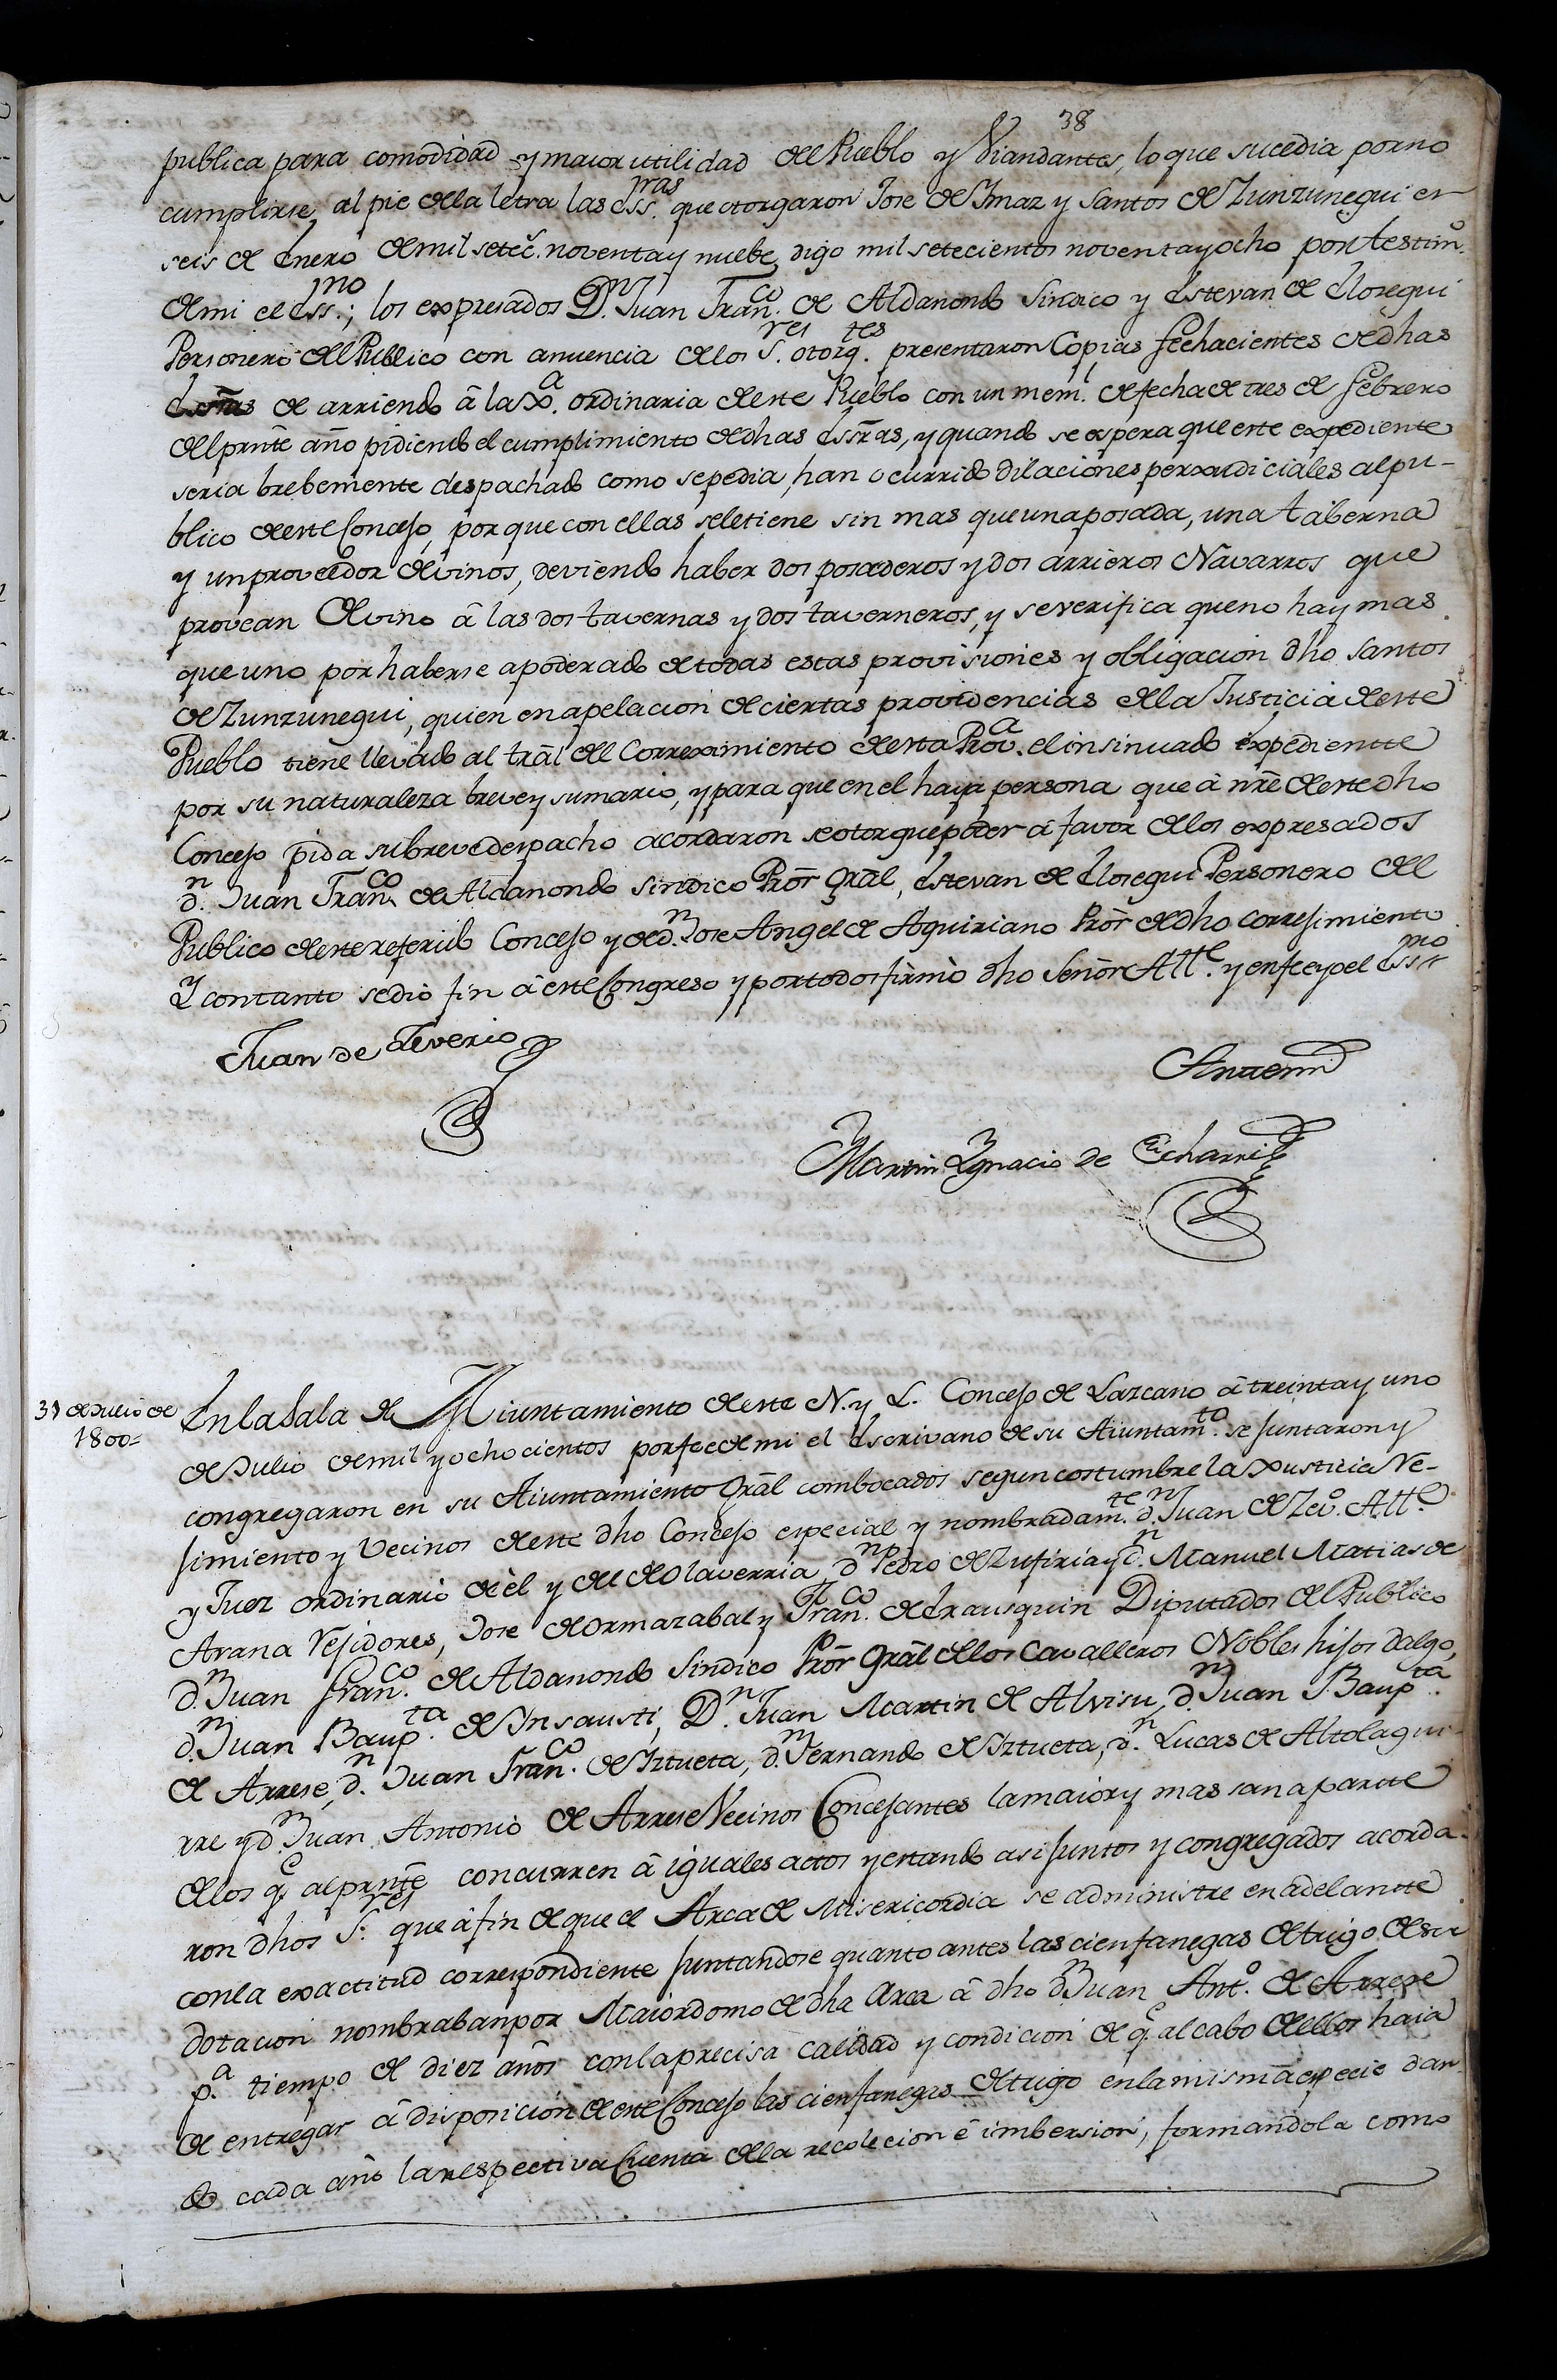 38
publica para comodidad y maior utilidad del Pueblo y Viandantes, lo que sucedia por no
cumplirse al pie de la letra las ess.ras que otorgaron Jose de Ymaz y Santos de Zunzunegui en
seis de Enero de mil setec.s noventa y nuebe, digo mil setecientos noventa y ocho por testim.o
de mi el Ess.mo; los expresados D.n Juan Fran.co de Aldanondo Sindico y Estevan de Elosegui
Personero del Publico con anuencia de los S.res otorg.tes presentaron Copias fechacientes de dhas
Essrãs de arriendo â la X.a ordinaria de este Pueblo con un mem.l de fecha de tres de febrero
del prñte año pidiendo el cumplimiento de dhas Essrãs, y quando se espera que este expediente
seria brebemente despachado como se pedia, han ocurrido dilaciones perxudiciales al pu-
blico de este Concejo, por que con ellas se le tiene sin mas que una posada, una taberna
y un proveedor de vinos, deviendo haber dos posaderos y dos arrieros Navarros que
provean de vino â las dos tavernas y dos taverneros, y se verifica que no hay mas
que uno por haberse apoderado de todas estas provisiones y obligacion dho Santos
de Zunzunegui, quien en apelacion de ciertas providencias de la Justicia de este
Pueblo tiene llevado al trãl del Correximiento de esta Prov.a el insinuado expediente
por su naturaleza breve y sumario, y para que en el haya persona que â nrẽ de este dho
Concejo pida su breve despacho acordaron se otorgue poder â favor de los expresados
d.n Juan Fran.co de Aldanondo sindico Prõr Grãl, Estevan de Elosegui Personero del
Publico de este referido Concejo y de d.n Jose Angel de Aquiriano Prõr de dho correjimiento
Y con tanto se diò fin â este Congreso y por todos firmò dho Señor All.e y en fee yo el Ess.mo
Juan de Zeverio
Antemi
Martin Ygnacio de Echarri
31 de Julio de
1800=
En la Sala de Aiuntamiento de este N. y L. Concejo de Lazcano â treinta y uno
de Julio de mil y ochocientos por fee de mi el Escrivano de su Aiuntam.to se juntaron y
congregaron en su Aiuntamiento Grãl combocados segun costumbre la Xusticia Re-
jimiento y Vecinos de este dho Concejo especial y nombradam.te d.n Juan de Zev.o All.e
y Juez ordinario de èl y de el de Olaverria, d.n Pedro de Zufiria y d.n Manuel Matias de
Arana Rejidores, Jose de Ormazabal y Fran.co de Erausquin Diputados del Publico
d.n Juan Fran.co de Aldanondo Sindico Prõr Grãl de los Cavalleros Nobles hijos dalgo,
d.n Juan Baup.ta de Insausti, D.n Juan Martin de Alvisu, d.n Juan Baup.ta
de Arrese, d.n Juan Fran.co de Iztueta, d.n Fernando de Iztueta, d.n Lucas de Altolagui-
rre y d.n Juan Antonio de Arrese Vecinos Concejantes la maior y mas sana parte
de los q.e al prñte concurren â iguales actos y estando asi juntos y congregados acorda-
ron dhos S.res que â fin de que el Arca de Misericordia se administre en adelante
con la exactitud correspondiente juntandose quanto antes las cien fanegas de trigo de su
dotacion nombraban por Maiordomo de dha Arca â dho d.n Juan Ant.o de Arrese
p.a tiempo de diez años con la precisa calidad y condicion de q.e al cabo de ellos haia
de entregar â disposicion de este Concejo las cien fanegas de trigo en la misma especie dan-
do cada año la respectiva Cuenta de la recolecion è imbersion, formandola como